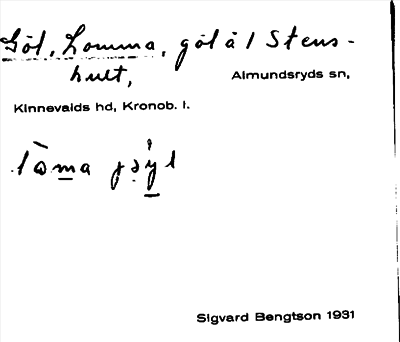 Göl, Lomma, göl å 1 Stens-
hult, Almundsryds sn,
Kinnevalds hd, Kronob. l.
Sigvard Bengtson 1931